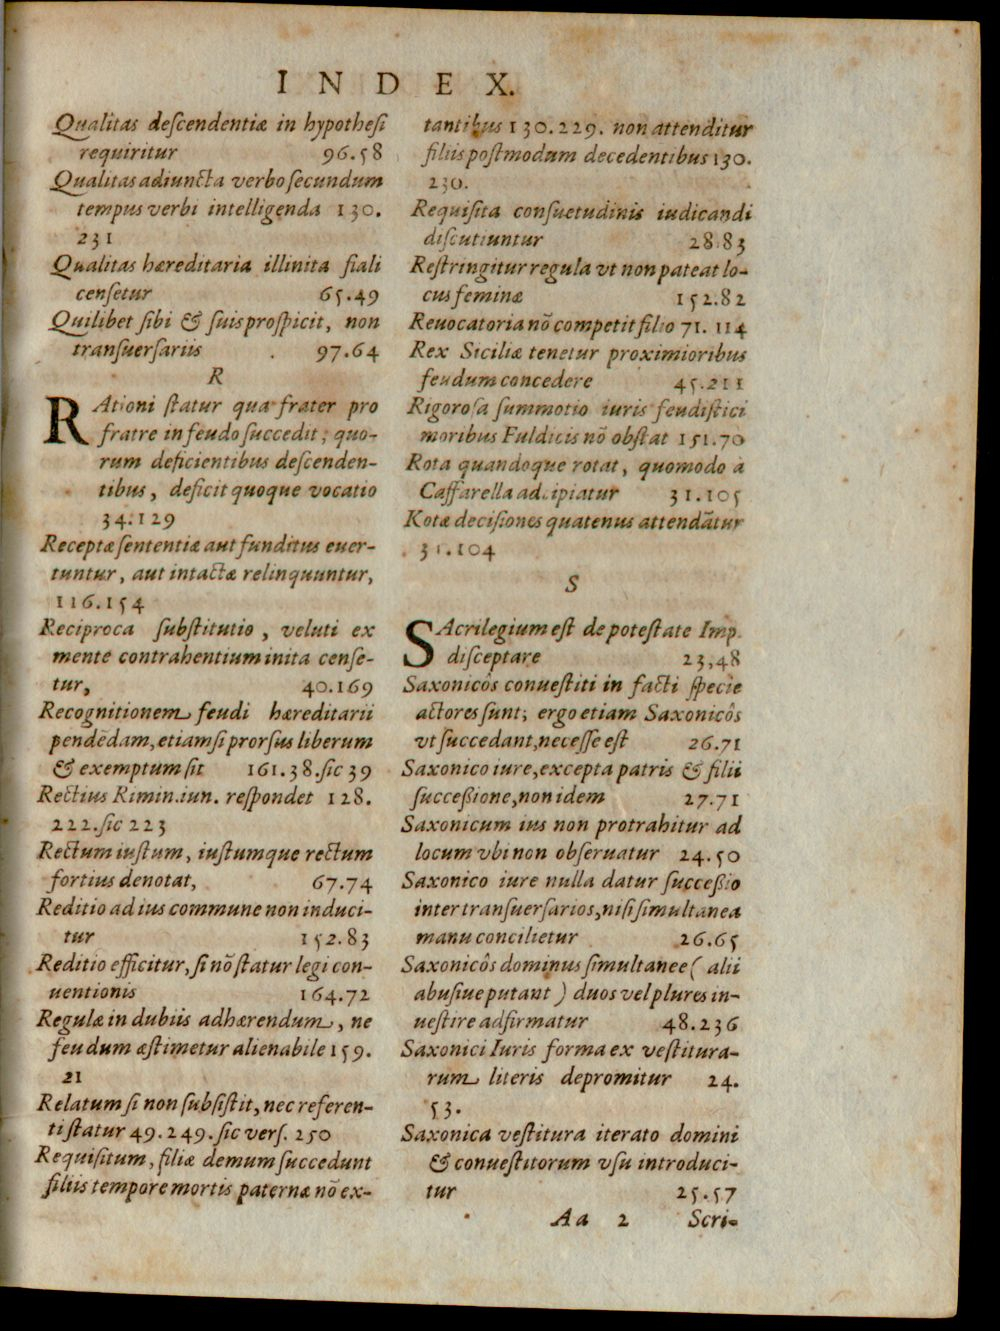 INDEX.
Qualitas deſcendentiæ in hypotheſi
requiritur 96.58
Qualitas adiuncta verbo ſecundum
tempus verbi intelligenda 130.
231
Qualitas hæreditaria illinita fiali
cenſetur 65.49
Quilibet ſibi & ſuis proſpicit, non
tranſuerſariis 97.64
R
RAtioni ſtatur qua frater pro
fratre in feudo ſuccedit, quo-
rum deficientibus deſcenden-
tibus, deficit quoque vocatio
34.129
Receptæ ſententiæ aut funditus euer-
tuntur, aut intactæ relinquuntur,
116.154
Reciproca ſubſtitutio, veluti ex
mente contrahentium inita cenſe-
tur, 40.169
Recognitionem feudi hæreditarii
pendēdam, etiamſi prorſus liberum
& exemptum ſit 161.38. ſic 39
Rectius Rimin. iun. reſpondet 128.
222. ſic 223
Rectum iuſtum, iuſtumque rectum
fortius denotat, 67.74
Reditio ad ius commune non induci-
tur 152.83
Reditio efficitur, ſi nō ſtatur legi con-
uentionis 164.72
Regulæ in dubiis adhærendum, ne
feudum æſtimetur alienabile 159.
21
Relatum ſi non ſubſiſtit, nec referen-
ti ſtatur 49.249. ſic verſ. 250
Requiſitum, filiæ demum ſuccedunt
filiis tempore mortis paternæ nō ex-
tantibus 130.229. non attenditur
filiis poſtmodum decedentibus 130.
230.
Requiſita conſuetudinis iudicandi
diſcutiuntur 28.83
Reſtringitur regula vt non pateat lo-
cus feminæ 152.82
Reuocatoria nō competit filio 71. 114
Rex Siciliæ tenetur proximioribus
feudum concedere 45.211
Rigoroſa ſummotio iuris feudiſtici
moribus Fuldicis nō obſtat 151.70
Rota quandoque rotat, quomodo a
Caffarella adcipiatur 31.105
Rotæ deciſiones quatenus attendātur
31.104
S
SAcrilegium eſt de poteſtate Imp.
diſceptare 23,48
Saxonicôs conueſtiti in facti ſpecie
actores ſunt; ergo etiam Saxonicôs
vt ſuccedant, neceſſe eſt 26.71
Saxonico iure, excepta patris & filii
ſucceßione, non idem 27.71
Saxonicum ius non protrahitur ad
locum vbi non obſeruatur 24.50
Saxonico iure nulla datur ſucceßio
inter tranſuerſarios, niſi ſimultanea
manu concilietur 26.65
Saxonicôs dominus ſimultanee (alii
abuſiue putant) duos vel plures in-
ueſtire adfirmatur 48.236
Saxonici Iuris forma ex veſtitura-
rum literis depromitur 24.
53.
Saxonica veſtitura iterato domini
& conueſtitorum vſu introduci-
tur 25.57
Aa 2 Scri-